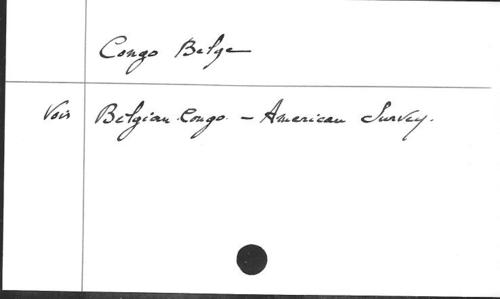 Congo Belge
Vois Belgian Congo. - American Survey.